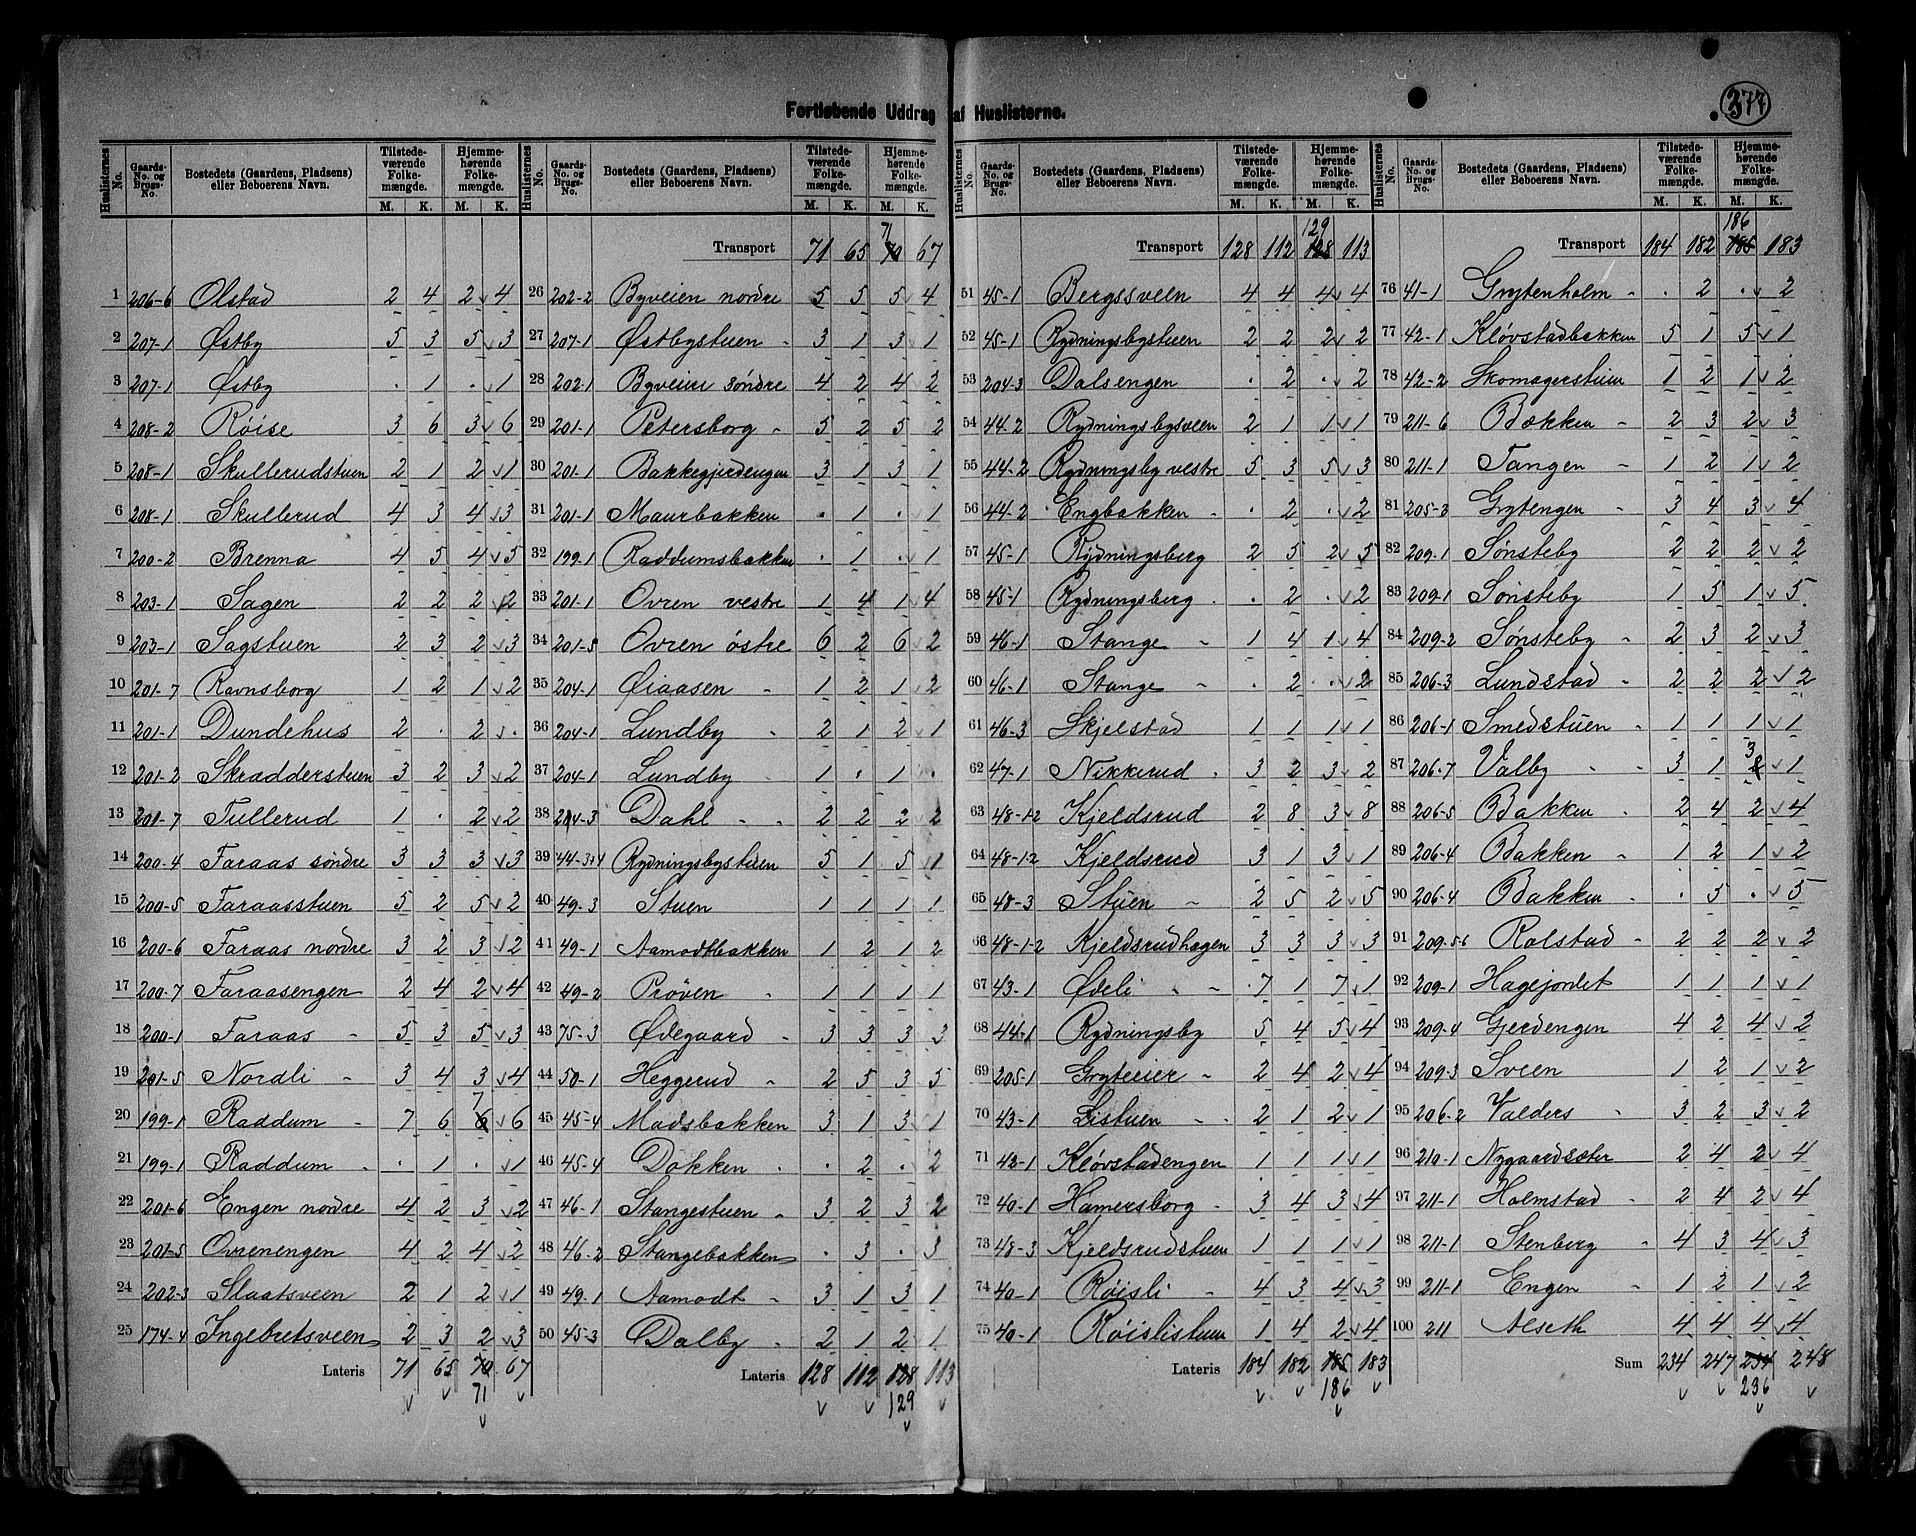 Fortløbende Uddrag af Huslisterne.
377
Huslisternes No. | Gaards-No. og Brugs-No. | Bostedets (Gaardens, Pladsens) eller Beboerens Navn. | Tilstedeværende Folkemængde. M. K. | Hjemmehørende Folkemængde. M. K.
1 206-6 Olstad 2 4 2 4
2 207-1 Østby 5 3 5 3
3 207-1 Østby . 1 . 1
4 208-2 Røise 3 6 3 6
5 208-1 Skullerudstuen 2 1 2 1
6 208-1 Skullerud 4 3 4 3
7 200-2 Brenna 4 5 4 5
8 203-1 Sagen 2 2 2 2
9 203-1 Sagstuen 2 3 2 3
10 201-7 Ravnsborg 1 2 1 2
11 201-1 Dundehus 2 . 2 .
12 201-2 Skradderstuen 3 2 3 2
13 201-7 Tullerud 1 . 2 2
14 200-4 Faraas søndre 3 3 3 3
15 200-5 Faraasstuen 5 2 5 2
16 200-6 Faraas nordre 3 2 3 2
17 200-7 Faraasengen 2 4 2 4
18 200-1 Faraas 5 3 5 3
19 201-5 Nordli 3 4 3 4
20 199-1 Raddum 7 6 6 7 6
21 199-1 Raddum . 1 . 1
22 201-6 Engen nordre 4 2 3 2
23 201-5 Ovrenengen 4 2 4 2
24 202-3 Slaatsveen 2 1 2 1
25 174-4 Ingebretsveen 2 3 2 3
Lateris 71 65 70 67
71
Huslisternes No. | Gaards-No. og Brugs-No. | Bostedets (Gaardens, Pladsens) eller Beboerens Navn. | Tilstedeværende Folkemængde. M. K. | Hjemmehørende Folkemængde. M. K.
71
Transport 71 65 70 67
26 202-2 Byveien nordre 5 5 5 4
27 207-1 Østbystuen 3 1 3 1
28 202-1 Byveien søndre 4 2 4 2
29 201-1 Petersborg 5 2 5 2
30 201-1 Bakkegjerdengen 3 1 3 1
31 201-1 Maurbakken . 1 . 1
32 199-1 Raddumsbakken . 1 . 1
33 201-1 Ovren vestre 1 4 1 4
34 201-5 Ovren østre 6 2 6 2
35 204-1 Øiaasen 1 2 1 2
36 204-1 Lundby 2 1 2 1
37 204-1 Lundby 1 . 1 .
38 204-3 Dahl 2 2 2 2
39 44-3+4 Rydningsbystuen 5 1 5 1
40 49-3 Stuen 1 1 1 1
41 49-1 Aamodtbakken 1 2 1 2
42 49-2 Prøven 1 1 1 1
43 75-3 Ødegaard 3 3 3 3
44 50-1 Heggerud 2 5 3 5
45 45-4 Madsbakken 3 1 3 1
46 45-4 Dokken . 2 . 2
47 46-1 Stangestuen 3 2 3 2
48 46-2 Stangebakken . 3 . 3
49 49-1 Aamodt 3 1 3 1
50 45-3 Dalby 2 1 2 1
Lateris 128 112 128 113
129
Huslisternes No. | Gaards-No. og Brugs-No. | Bostedets (Gaardens, Pladsens) eller Beboerens Navn. | Tilstedeværende Folkemængde. M. K. | Hjemmehørende Folkemængde. M. K.
129
Transport 128 112 128 113
51 45-1 Bergssveen 4 4 4 4
52 45-1 Rydningsbystuen 2 2 2 2
53 204-3 Dalsengen . 2 . 2
54 44-2 Rydningsbysveen 2 1 1 1
55 44-2 Rydningsby vestre 5 3 5 3
56 44-2 Engbakken . 2 . 2
57 45-1 Rydningsberg 2 5 2 5
58 45-1 Rydningsberg . 2 . 2
59 46-1 Stange 1 4 1 4
60 46-1 Stange . 2 . 2
61 46-3 Skjelstad 1 1 1 1
62 47-1 Nikkerud 3 2 3 2
63 48-1-2 Kjeldsrud 2 8 3 8
64 48-1-2 Kjeldsrud 3 1 3 1
65 48-3 Stuen 2 5 2 5
66 48-1-2 Kjeldsrudhagen 3 3 3 3
67 43-1 Ødeli 7 1 7 1
68 44-1 Rydningsby 5 4 5 4
69 205-1 Gryteeier 2 4 2 4
70 43-1 Listuen 2 1 2 1
71 42-1 Kløvstadengen 1 1 1 1
72 40-1 Hamersborg 3 4 3 4
73 48-3 Kjeldsrudstuen 1 1 1 1
74 40-1 Røisli 4 3 4 3
75 40-1 Røislistuen 1 4 2 4
Lateris 184 182 185 183
186
Huslisternes No. | Gaards-No. og Brugs-No. | Bostedets (Gaardens, Pladsens) eller Beboerens Navn. | Tilstedeværende Folkemængde. M. K. | Hjemmehørende Folkemængde. M. K.
186
Transport 184 182 185 183
76 41-1 Grytenholm . 2 . 2
77 42-1 Kløvstadbakken 5 1 5 1
78 42-2 Skomagerstuen 1 2 1 2
79 211-6 Bækken 2 3 2 3
80 211-1 Tangen 1 2 1 2
81 205-3 Grytengen 3 4 3 4
82 209-1 Sønsteby 2 2 2 2
83 209-1 Sønsteby 1 5 1 5
84 209-2 Sønsteby 2 3 2 3
85 206-3 Lundstad 2 2 2 2
86 206-1 Smedstuen 1 1 1 1
87 206-7 Valby 3 1 2 3 1
88 206-5 Bakken 2 4 2 4
89 206-4 Bakken 1 2 1 2
90 206-4 Bakken . 5 . 5
91 209-5-6 Rolstad 2 2 2 2
92 209-1 Hagejordet 1 1 1 1
93 209-4 Gjerdengen 4 2 4 2
94 209-3 Sveen 1 2 1 2
95 206-2 Valders 3 2 3 2
96 210-1 Nygaardsæter 2 4 2 4
97 211-1 Holmstad 2 4 2 4
98 211-1 Stenberg 4 3 4 3
99 211-1 Engen 1 2 1 2
100 211 Alseth 4 4 4 4
Sum 234 247 234 248
236